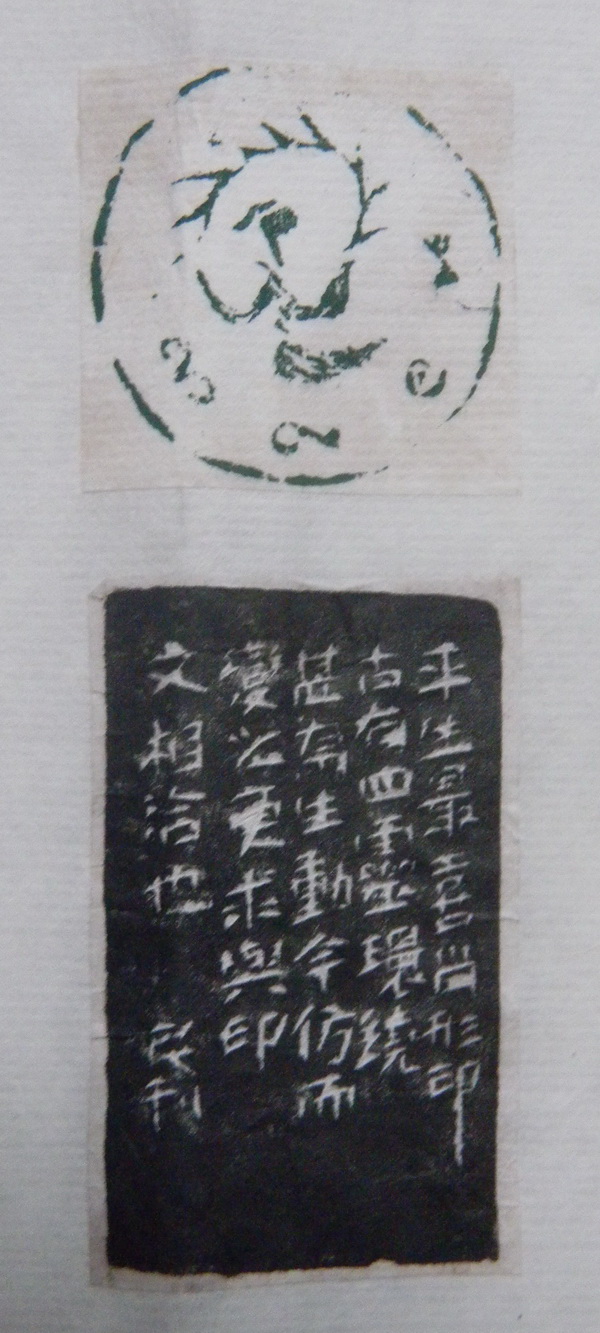 平生最喜肖形印
古有四靈璽環繞
甚為生動今仿而
變以更求與印
文相洽也